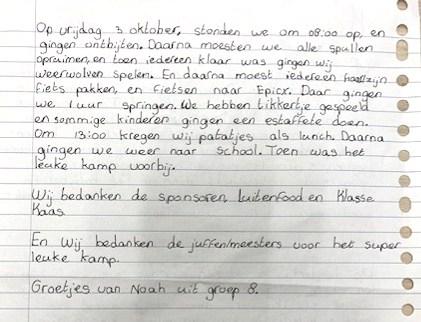 Op vrijdag 3 oktober, stonden we om 08:00 op, en
gingen ontbijten. Daarna moesten we alle spullen
opruimen, en toen iedereen klaar was gingen wij
weerwolven spelen. En daarna moest iedereen zijn
fiets pakken, en fietsen naar Epicx. Daar gingen
we 1 uur springen. We hebben tikkertje gespeeld
en sommige kinderen gingen een estaffete doen.
Om 13:00 kregen wij patatjes als lunch. Daarna
gingen we weer naar school. Toen was het
leuke kamp voorbij.
Wij bedanken de sponsoren, Luitenfood en Klasse
Kaas
En wij bedanken de juffen/meesters voor het super
leuke kamp.
Groetjes van Noah uit groep 8.